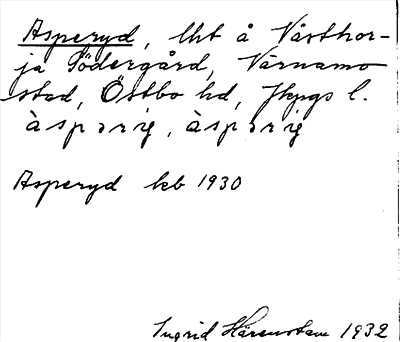 Asperyd, lht å Västhor-
ja Södergård, Värnamo
stad, Östbo hd, Jkpgs l.
àspəriʒ, àspəriʒ
Asperyd kb 1930
Ingrid Hårenstam 1932